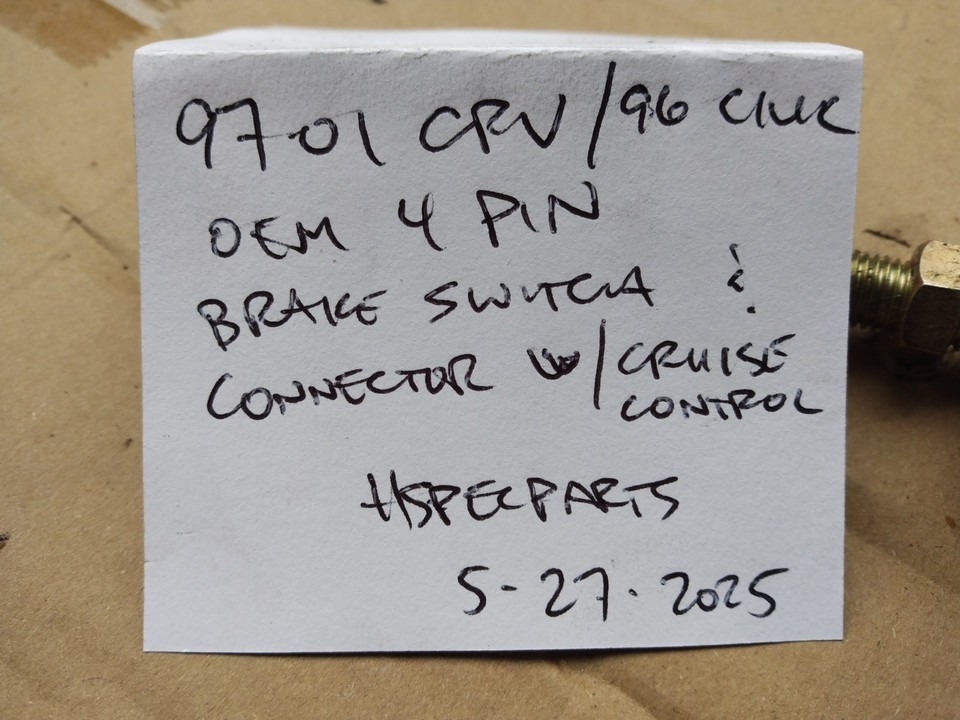 97-01 CRV / 96 CIVIC
OEM 4 PIN
BRAKE SWITCH &
CONNECTOR W/ CRUISE
CONTROL
HSPECPARTS
5-27-2025